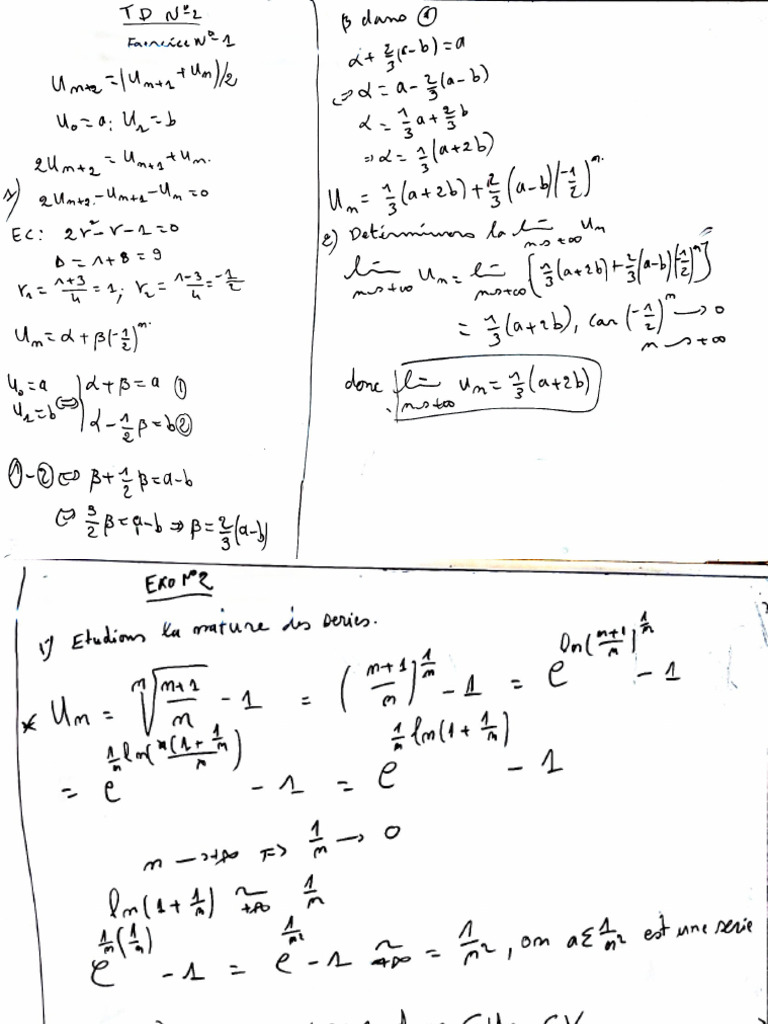 TD N°2
Exercice N°1
U_{n+2} = (U_{n+1} + U_n)/2
U_0 = a; U_1 = b
2U_{n+2} = U_{n+1} + U_n.
1) 2U_{n+2} - U_{n+1} - U_n = 0
EC: 2r² - r - 1 = 0
Δ = 1 + 8 = 9
r_1 = (1+3)/4 = 1; r_2 = (1-3)/4 = -1/2
U_n = α + β(-1/2)^n.
U_0 = a
U_1 = b ⇔ { α + β = a ①
α - 1/2 β = b ②
① - ② ⇔ β + 1/2 β = a - b
⇔ 3/2 β = a - b ⇒ β = 2/3 (a - b)
β dans ①
α + 2/3 (a - b) = a
⇔ α = a - 2/3 (a - b)
α = 1/3 a + 2/3 b
⇒ α = 1/3 (a + 2b)
U_n = 1/3 (a + 2b) + 2/3 (a - b)(-1/2)^n.
2) Déterminons la lim_{n→+∞} U_n
lim_{n→+∞} U_n = lim_{n→+∞} [1/3 (a + 2b) + 2/3 (a - b)(-1/2)^n]
= 1/3 (a + 2b), car (-1/2)^n → 0
n → +∞
donc lim_{n→+∞} U_n = 1/3 (a + 2b)
EXO N°2
1) Etudions la nature des series.
* U_n = ⁿ√((n+1)/n) - 1 = ((n+1)/n)^{1/n} - 1 = e^{ln((n+1)/n)^{1/n}} - 1
= e^{1/n ln(n(1 + 1/n)/n)} - 1 = e^{1/n ln(1 + 1/n)} - 1
n → +∞ ⇒ 1/n → 0
ln(1 + 1/n) ~_{+∞} 1/n
e^{1/n (1/n)} - 1 = e^{1/n²} - 1 ~_{+∞} = 1/n², on a Σ 1/n² est une serie